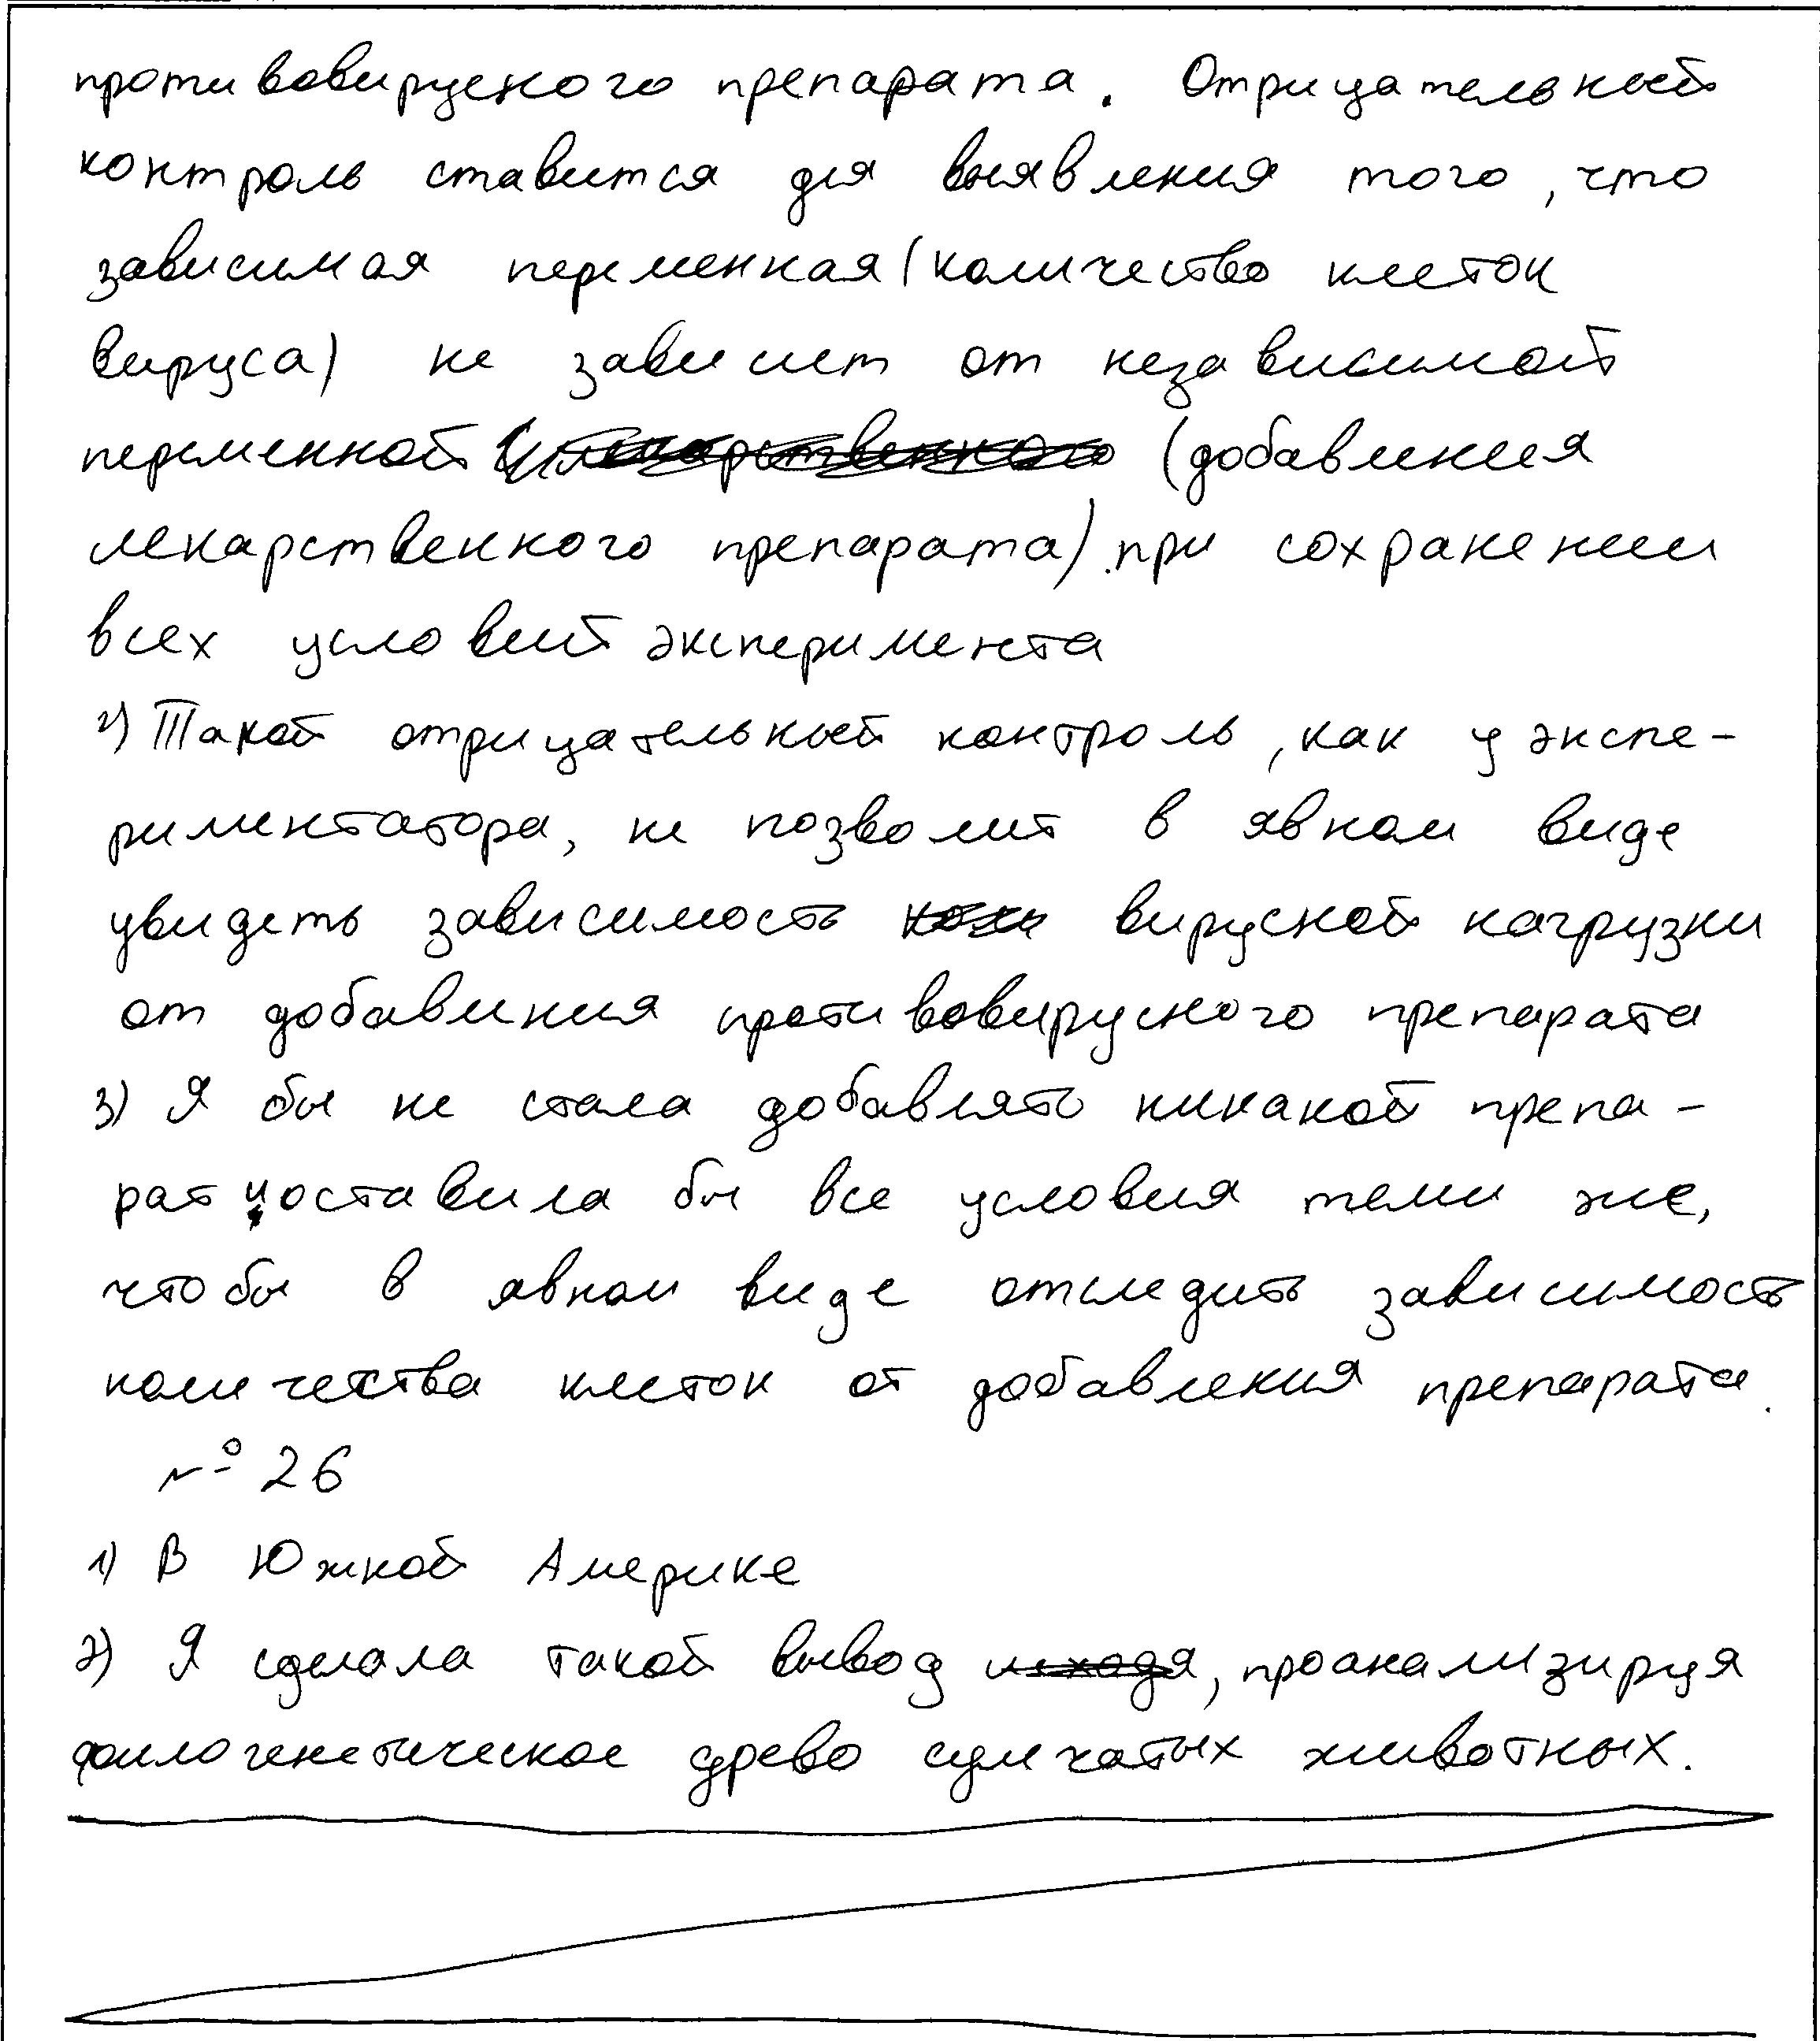 противовируского препарата. Отрицательный
контроль ставится для выявления того, что
зависимая переменная (количество клеток
вируса) не зависит от независимой
переменной (добавления
лекарственного препарата) при сохранении
всех условий эксперимента
2) Такой отрицательный контроль, как у экспе-
риментатора, не позволит в явном виде
увидеть зависимость вирусной нагрузки
от добавления противовирусного препарата
3) Я бы не стала добавлять никакой препа-
рат и оставила бы все условия теми же,
чтобы в явном виде отследить зависимость
количества клеток от добавления препарата.
№ 26
1) В Южной Америке
2) Я сделала такой вывод исходя, проанализируя
филогенетическое древо сумчатых животных.